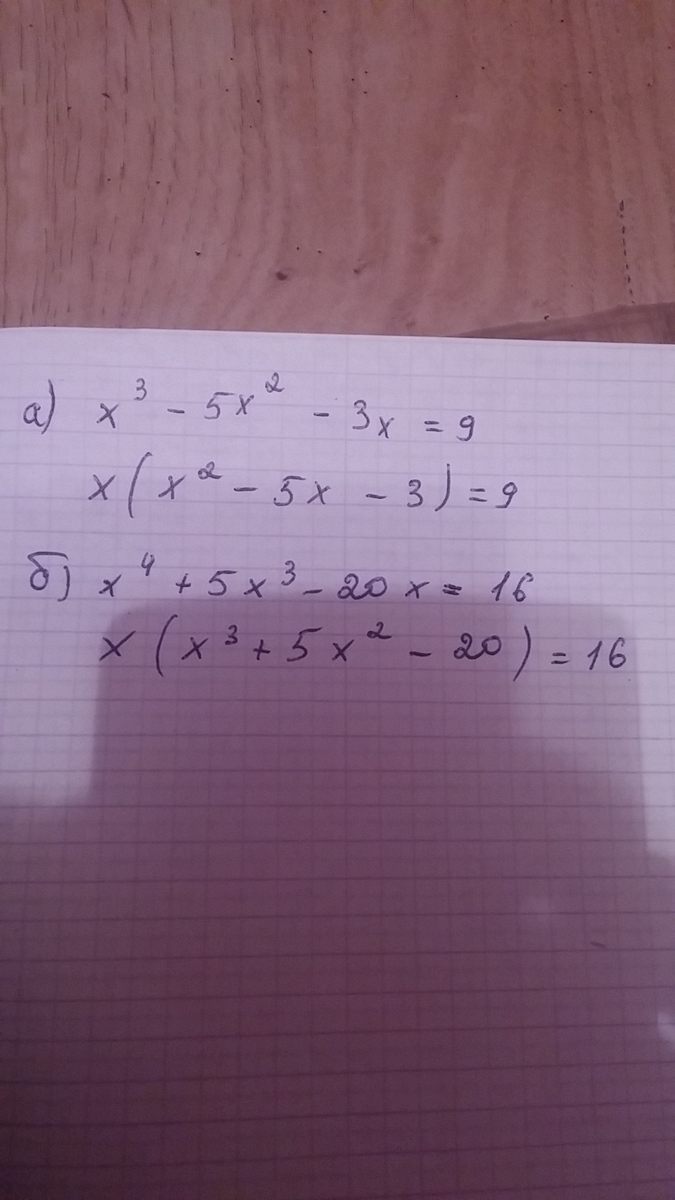 а) x³ - 5x² - 3x = 9
x(x² - 5x - 3) = 9
б) x⁴ + 5x³ - 20x = 16
x(x³ + 5x² - 20) = 16